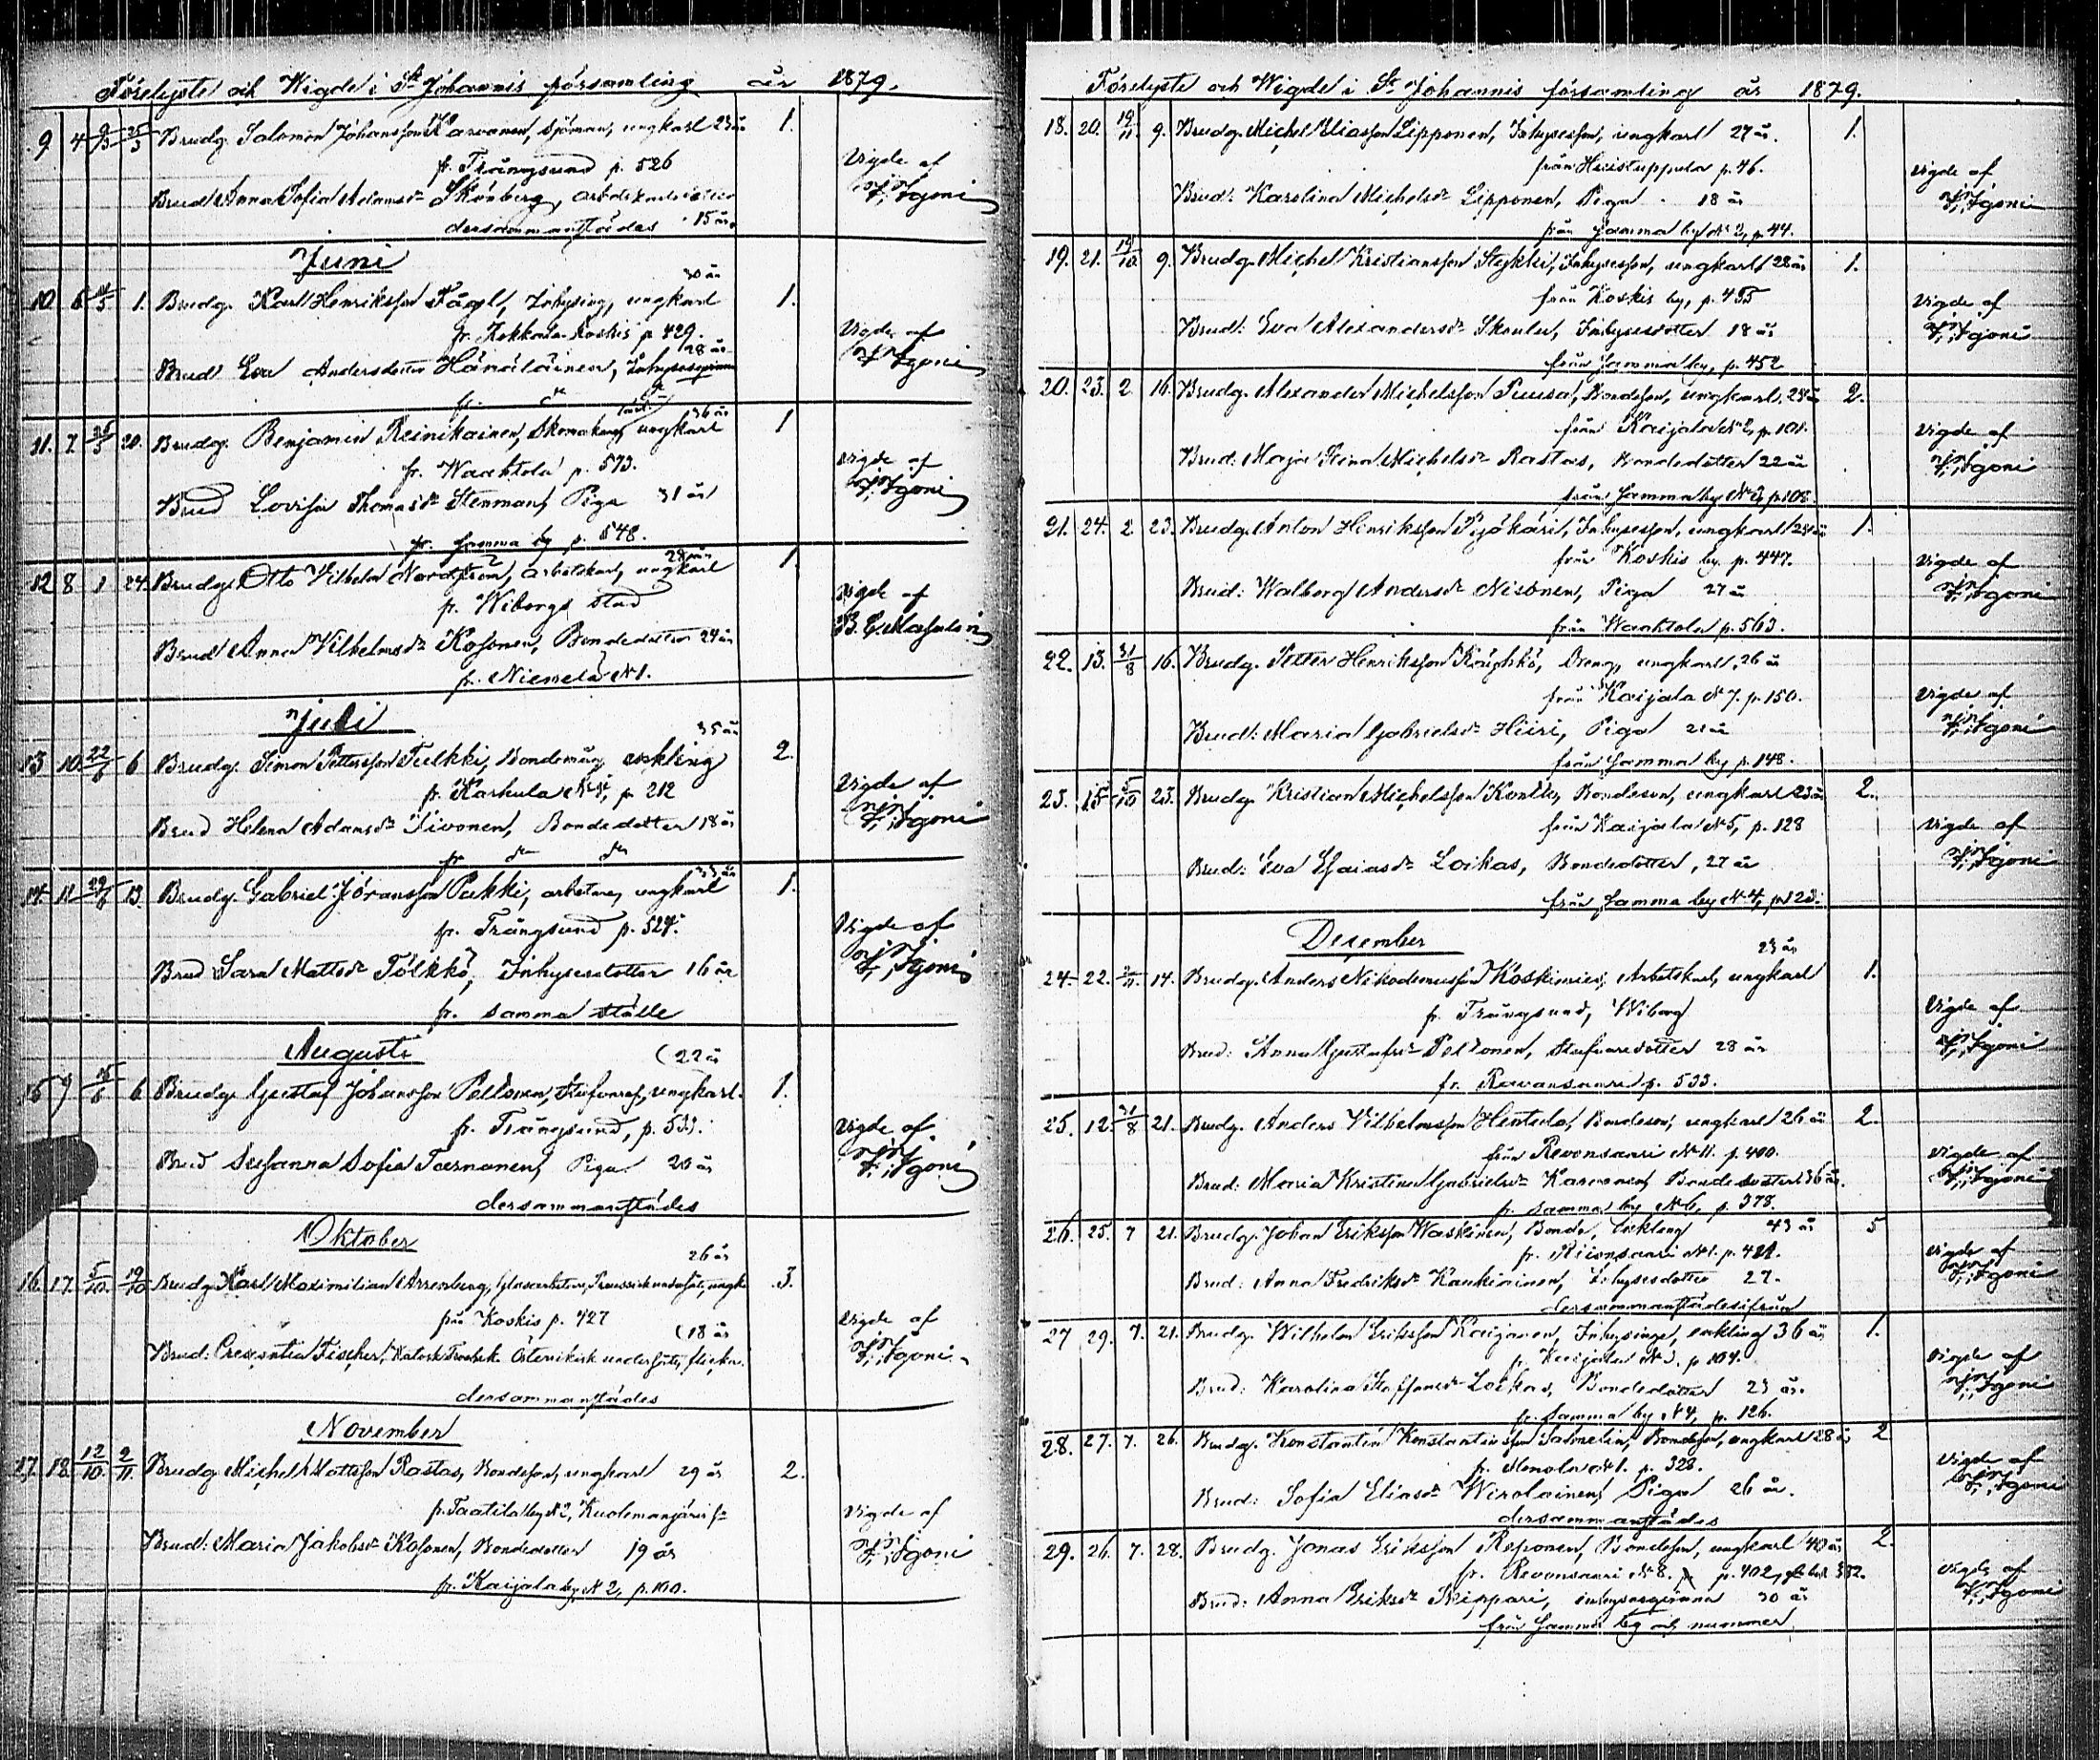 Förelyste och Wigde i St Johannis församling år 1879.
9 4 9/3 25/3 Brudg. Salomon Johansson Karvonen, sjöman, ungkarl 23 år 1.
fr. Trångsund p. 526
Vigde af
Brud Anna Sofia Adamsdr Skönberg,
F. Igoni
dersammanstädes 15 år
Juni
30 år
10 6 1. Brudg. Karl Henriksson Fägel, Inhysing, ungkarl 1.
fr. Kokkola Koskis p. 429.
Vigde af
28 år
Brud Eva Andersdotter Hämäläinen,
F. Igoni
fr. dr dr
36 år
11. 7. 25/5 20. Brudg. Benjamin Reinikainen, Skomakare, ungkarl 1
fr. Waahtola p. 573.
Vigde af
Brud Lovisa Thomasdr Stenman, Piga 31 år
F. Igoni
fr. samma by p. 548.
28 år
12 8 1 24. Brudg. Otto Vilhelm Nordström, arbetskarl, ungkarl 1.
fr. Wiborgs stad
Vigde af
Brud Anna Vilhelmsdr Kosonen, Bondedotter 24 år
fr. Niemelä N 1.
Juli
35 år
13 10. 22/6 6 Brudg. Simon Pettersson Tulkki, Bondemåg enkling 2.
fr. Karhula p. 212
Vigde af
Brud Helena Adamsdr Sivonen, Bondedotter 18 år
F. Igoni
fr dr dr
33 år
14. 11 29/6 13. Brudg. Gabriel Göransson Pukki, arbetare, ungkarl 1.
fr. Trångsund p. 524.
Vigde af
Brud Sara Mattsdr Pölkkö, Inhysesdotter 16 år
F. Igoni
fr. samma ställe
Augusti
(22 år
15 9 6 Brudg. Gustaf Johansson Peltonen, ungkarl. 1.
fr. Trångsund, p. 533.
Vigde af
Brud Susanna Sofia Taernanen, Piga 20 år
F. Igoni
dersammanstädes
Oktober
26 år
16. 17. 5/10. 19/10 Brudg. Karl Maximilian Arrenberg, Glasarbetare, Preussisk undersåte, ungk. 3.
från Koskis p. 427
Vigde af
(18 år
Brud: Crescentia Fischer, Österrikisk undersåte, flicka.
F. Igoni
dersammanstädes
November
17. 18. 12/10. 2/11. Brudg. Michel Mattsson Rastas, Bondeson, ungkarl 29 år 2.
fr. Taatila by N 2, Kuolemanjärvi
Vigde af
Brud: Maria Jakobsdr Kosonen, Bondedotter 19 år
F. Igoni
fr. Kaijala by N 2, p. 100.
Förelyste och Wigde i St. Johannis församling år 1879.
18. 20. 19/11. 9. Brudg. Michel Eliasson Lipponen, Inhysesson, ungkarl 27 år. 1.
från p. 46.
Vigde af
Brud: Karolina Michelsdr Lipponen, Piga 18 år
F. Igoni
från samma by N 2, p. 44.
19. 21. 19/10 9. Brudg. Michel Kristiansson Stykki, Inhysesson, ungkarl 28 år 1.
från Koskis by, p. 455
Vigde af
Brud: Eva Alexandersdr Inhysesdotter 18 år
F. Igoni
från samma by, p. 452
20. 23. 2. 16. Brudg. Alexander Michelsson Puusa, Bondeson, ungkarl, 24 år 2.
från Kaijala N 2, p. 101.
Vigde af
Brud: Maja Stina Michelsdr Rastas, Bondedotter 22 år
F. Igoni
från samma by N 2, p. 108
21. 24. 2 23. Brudg. Anton Henriksson Pyökäri, Inhysesson, ungkarl 24 år 1.
från Koskis by. p. 447.
Vigde af
Brud: Walborg Andersdr Nisonen, Piga 27 år
F. Igoni
från Waahtola p. 563.
22. 13. 31/8 16. Brudg. Petter Henriksson Dreng, ungkarl, 26 år
från Kaijala N 7. p. 150.
Vigde af
Brud: Maria Gabrielsdr Hiiri, Piga 21 år
F. Igoni
från samma by p. 148.
23. 15. 5/10 23. Brudg. Kristian Michelsson Kontto, Bondeson, ungkarl 23 år 2.
från Kaijala N 5, p. 128
Vigde af
Brud: Eva Esaiasdr Loikas, Bondedotter, 27 år
F. Igoni
från samma by N 4, p. 123.
December
23 år
24. 22. 14. Brudg. Anders Nikodemusson Koskimies, Arbetskarl, ungkarl 1.
fr. Trångsund, Wiborg
Vigde af
Brud: Anna Gustafsdr Peltonen, 28 år
F. Igoni
fr. Ravansaari p. 533.
25. 12. 31/8 21. Brudg. Anders Vilhelmsson Hentula, Bondeson, ungkarl 26 år 2.
från Revonsaari N 11. p. 400.
Vigde af
Brud: Maria Kristina Gabrielsdr Karvonen, Bondedotter 36 år.
F. Igoni
fr. samma by N 6, p. 378.
26. 25. 7 21. Brudg. Johan Eriksson Waskinen, Bonde, Enkling 43 år 5
fr. Revonsaari N 1. p. 421.
Vigde af
Brud: Anna Fredriksdr Kaukiainen, Inhysesdotter 27.
F. Igoni
dersammanstädesifrån
27 29. 7. 21. Brudg. Wilhelm Eriksson Kaijanen, Inhysing, enkling 36 år 1.
fr. Kaijala N 3. p. 104.
Vigde af
Brud: Karolina Staffansdr Loikas, Bondedotter 23 år.
F. Igoni
fr. samma by N 4, p. 126.
28. 27. 7. 26. Brudg. Konstantin Konstantinsson Salmelin, Bondeson, ungkarl 28 år 2
fr. N 1. p. 328.
Vigde af
Brud: Sofia Eliasdr Wirolainen, Piga 26 år.
F. Igoni
dersammanstädes
29. 26. 7. 28. Brudg. Jonas Eriksson Reponen, Bondeson, ungkarl 40 år 2.
fr. Revonsaari N 8. p. 402, 382.
Vigde af
Brud: Anna Eriksdr Skippari, inhyseqvinna 30 år
F. Igoni
från samma by och nummer